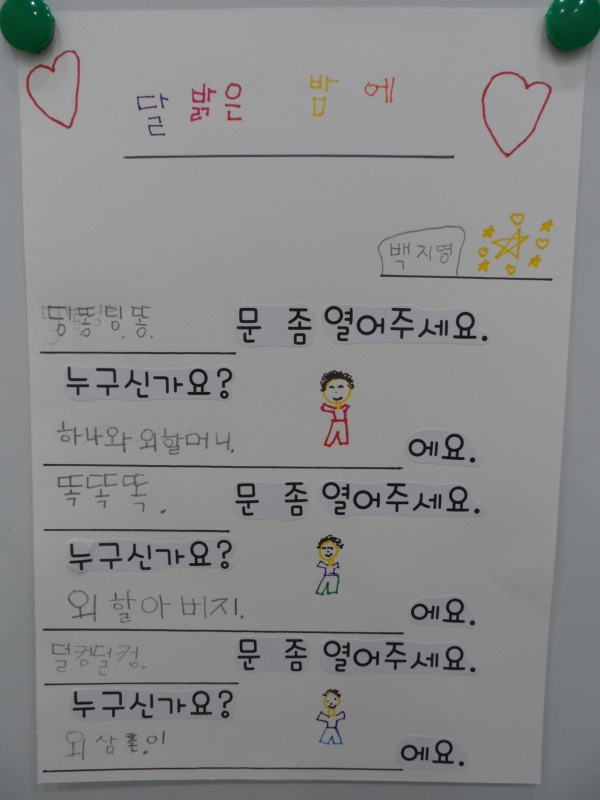 달 밝은 밤에
백지명
띵똥띵.똥. 문 좀 열어주세요.
누구신가요?
하나와 외할머니. 에요.
똑똑똑. 문 좀 열어주세요.
누구신가요?
외할아버지. 에요.
덜컹덜컹. 문 좀 열어주세요.
누구신가요?
외삼촌.이 에요.